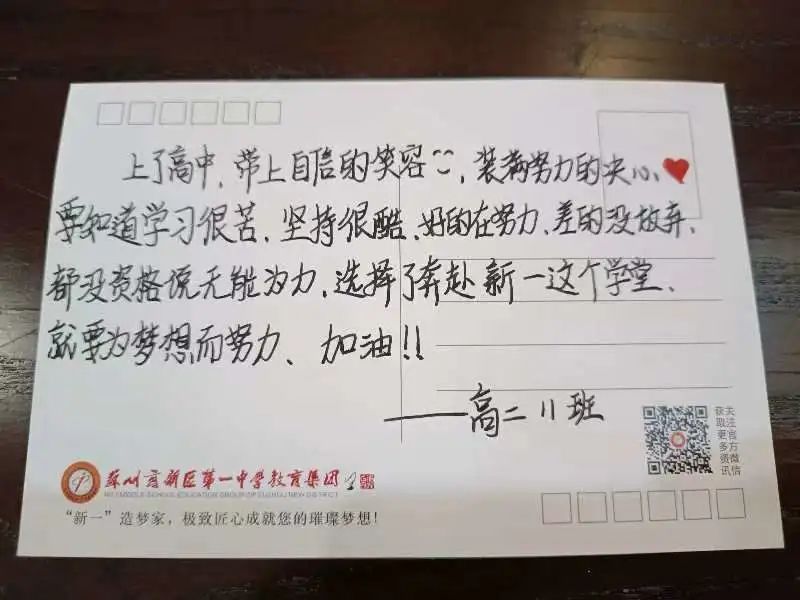 上了高中，带上自信的笑容，装满努力的决心、
要知道学习很苦、坚持很酷、好的在努力、差的没放弃、
都没资格说无能为力、选择了奔赴新一这个学堂、
就要为梦想而努力、加油!!
——高二11班
苏州高新区第一中学教育集团
NO.1 MIDDLE SCHOOL EDUCATION GROUP OF SUZHOU NEW DISTRICT
“新一”造梦家，极致匠心成就您的璀璨梦想!
关注官方微信
获取更多资讯